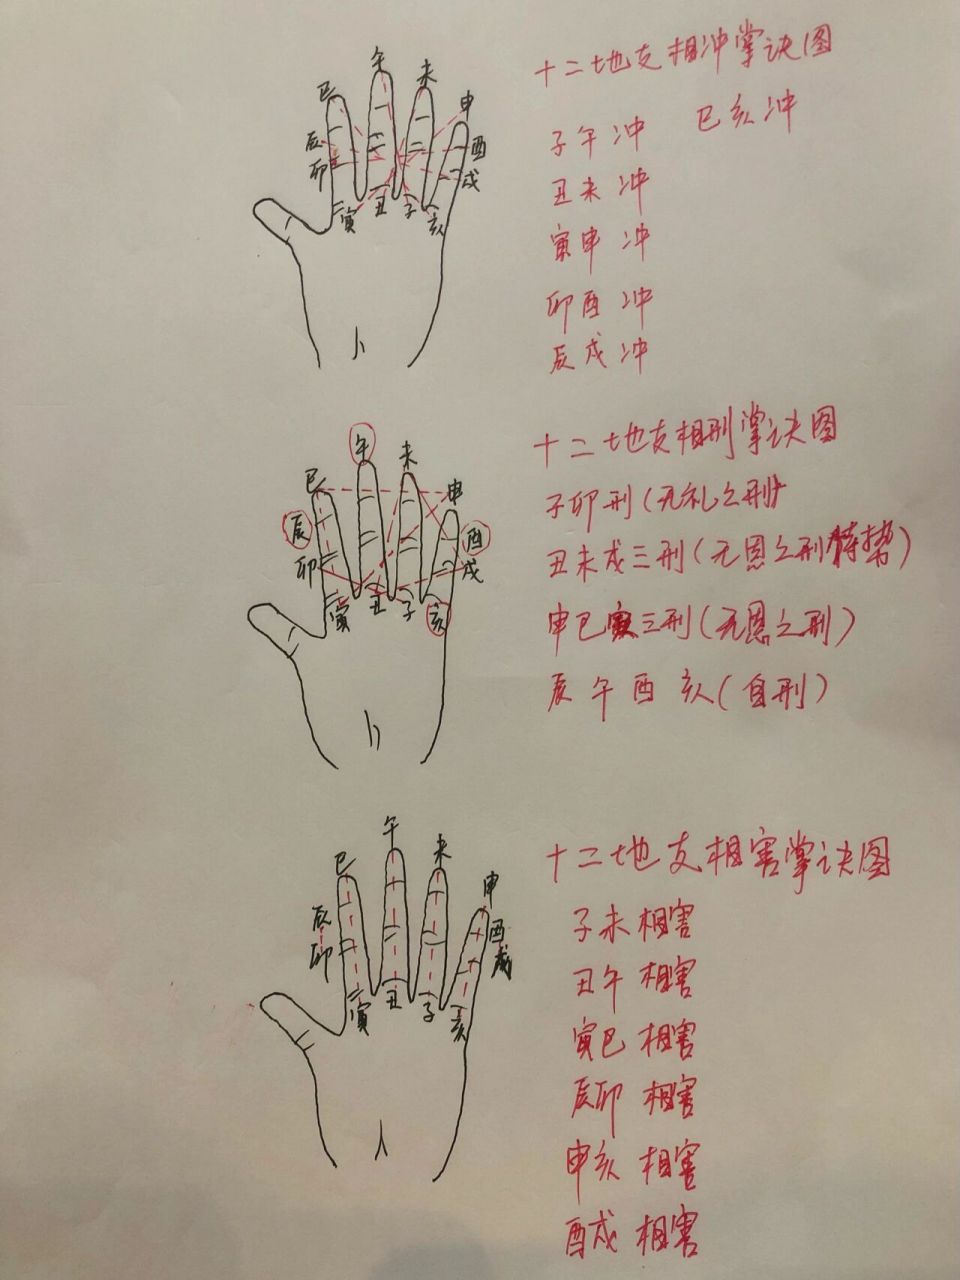 十二地支相冲掌诀图
子午冲 巳亥冲
丑未冲
寅申冲
卯酉冲
辰戌冲
午
未
巳
申
辰
酉
卯
戌
寅
丑
子
亥
十二地支相刑掌诀图
子卯刑(无礼之刑)
丑未戌三刑(无恩之刑持势)
申巳寅三刑(无恩之刑)
辰午酉亥(自刑)
午
未
巳
申
辰
酉
卯
戌
寅
丑
子
亥
十二地支相害掌诀图
子未相害
丑午相害
寅巳相害
辰卯相害
申亥相害
酉戌相害
午
未
巳
申
辰
酉
卯
戌
寅
丑
子
亥